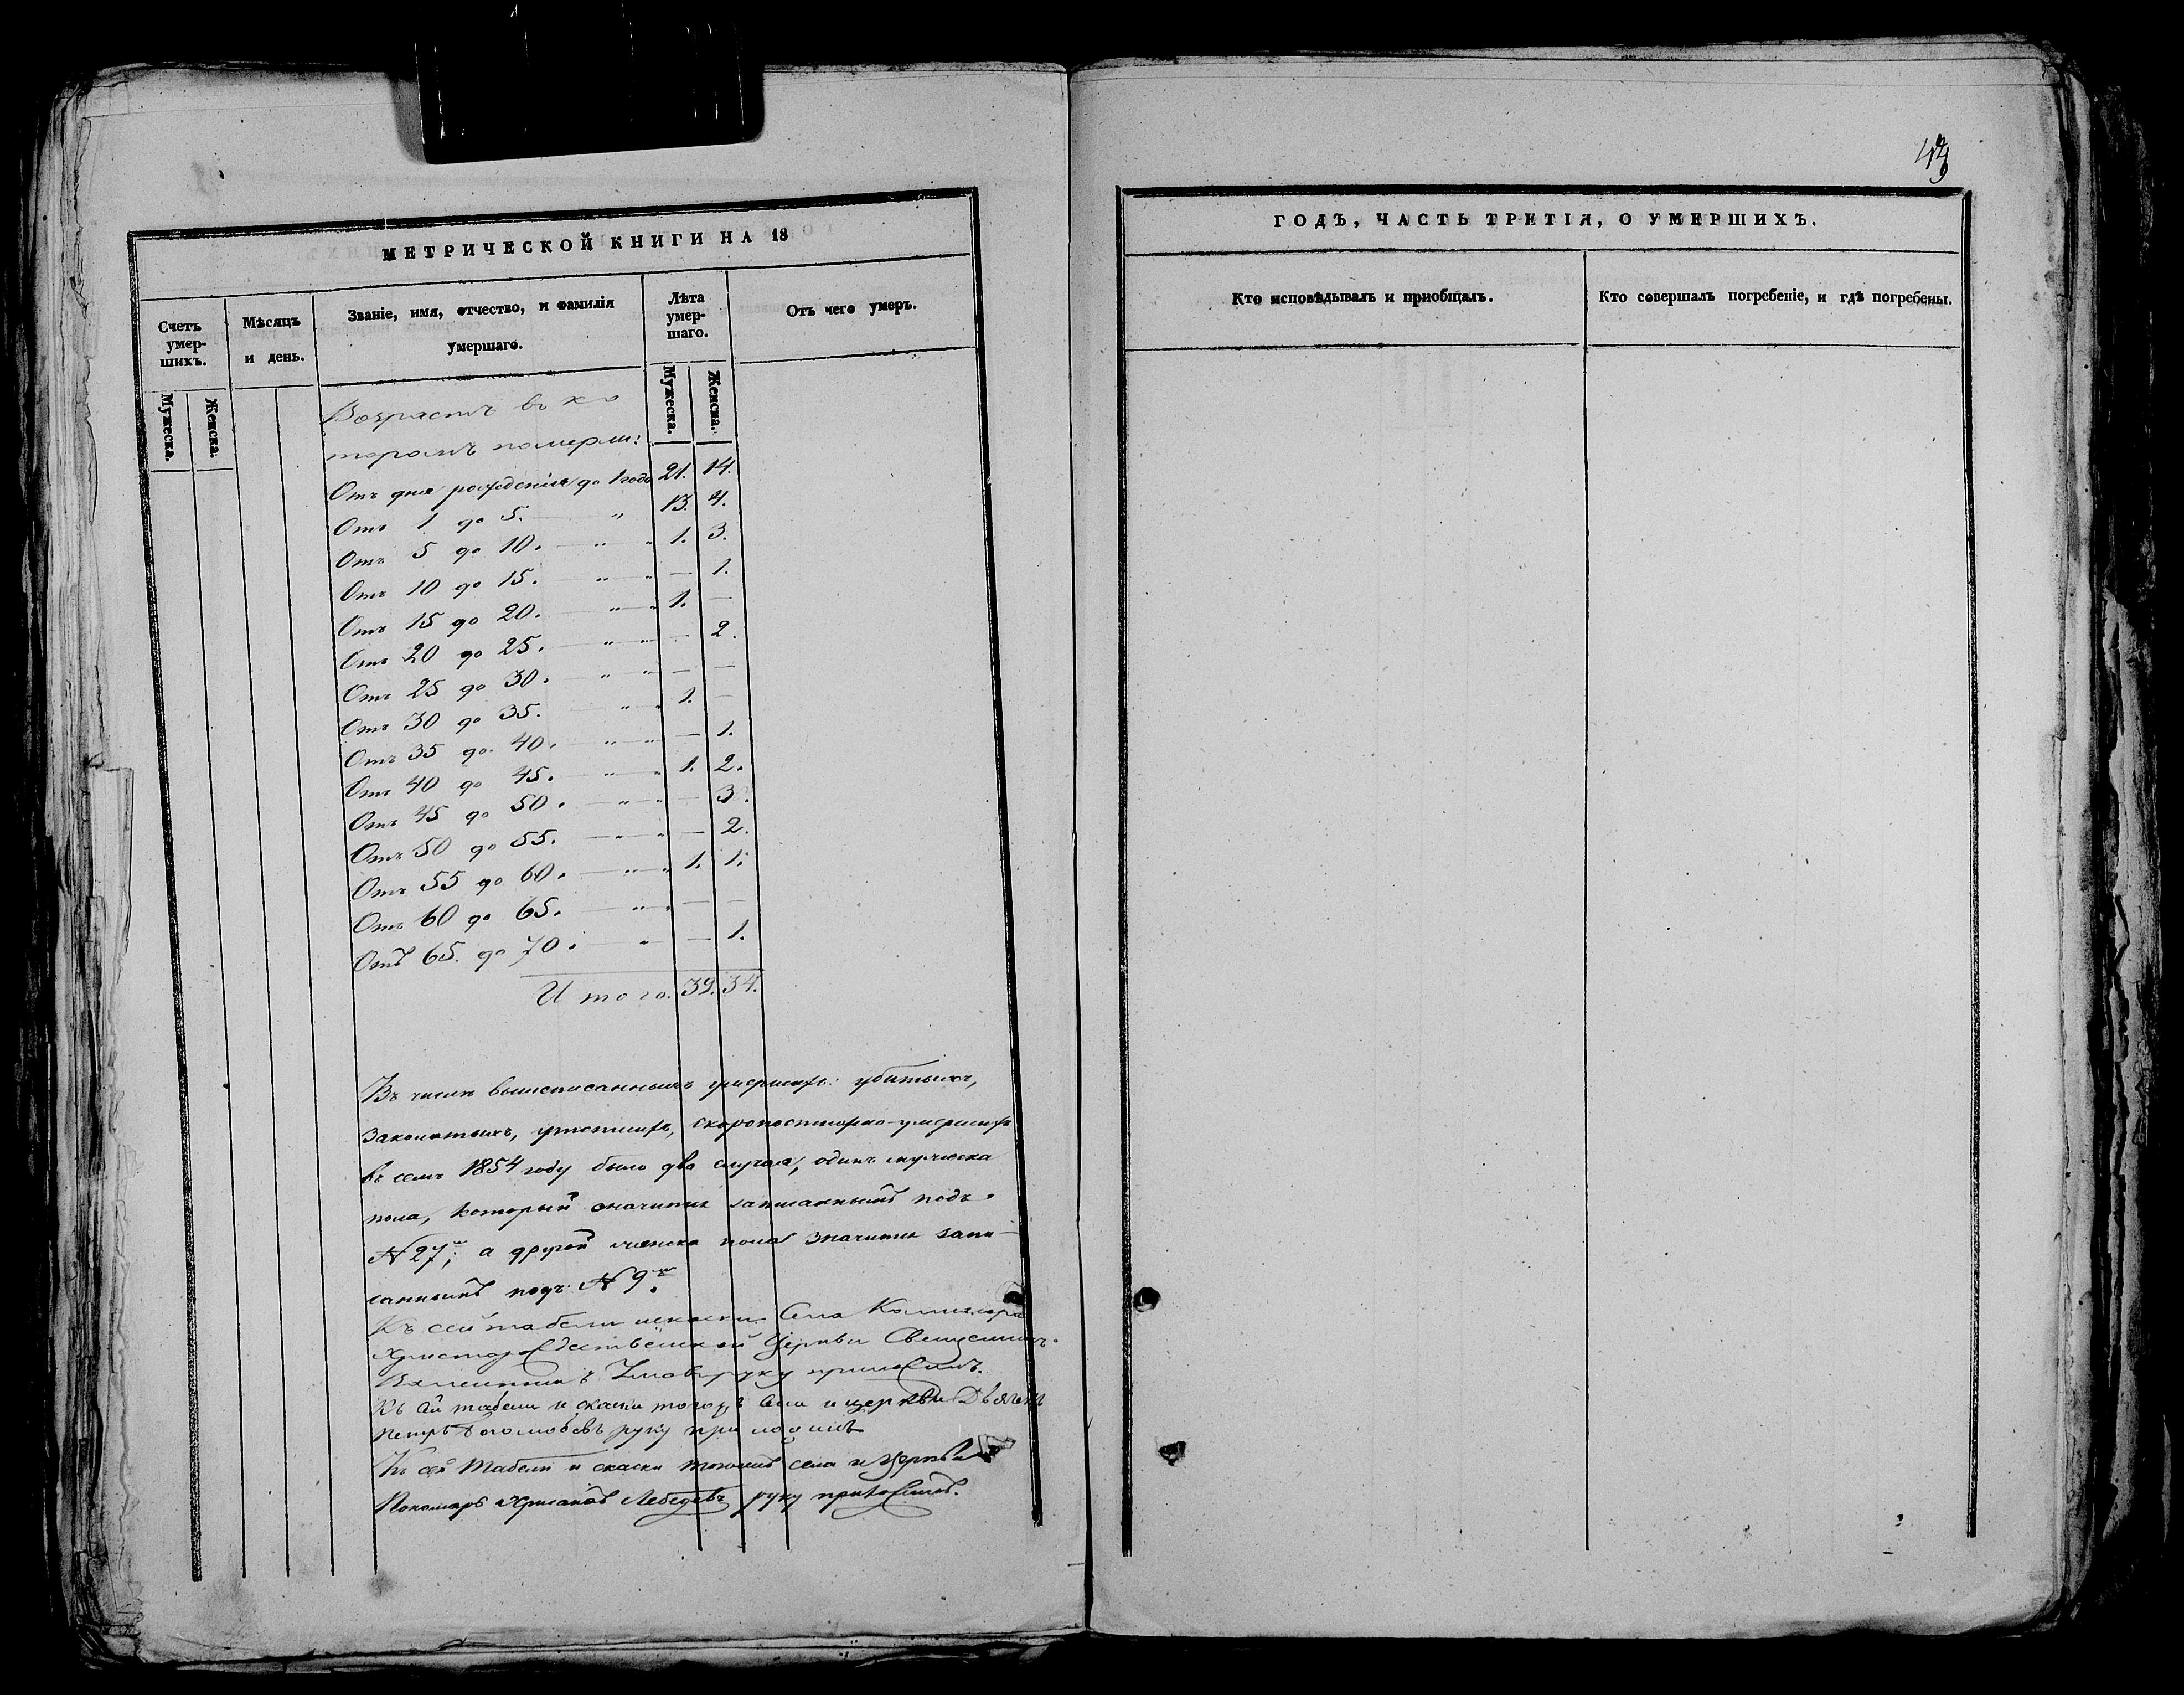 МЕТРИЧЕСКОЙ КНИГИ НА 18
Счетъ умер-шихъ.
Мужеска.
Женска.
Мѣсяцъ и день.
Званіе, имя, отчество, и фамилія умершаго.
Лѣта умер-шаго.
Мужеска.
Женска.
Отъ чего умеръ.
Возрастъ въ ко
торомъ померли:
Отъ дня рожденія до 1 года 21. 14.
Отъ 1 до 5. — " 13. 4.
Отъ 5 до 10. — " " 1. 3.
Отъ 10 до 15. — " " — 1.
Отъ 15 до 20. — " " 1. —
Отъ 20 до 25. — " " — 2.
Отъ 25 до 30. — " " — —
Отъ 30 до 35. — " " 1. —
Отъ 35 до 40. " " — 1.
Отъ 40 до 45. " " 1. 2.
Отъ 45 до 50. — " " — 3.
Отъ 50 до 55. — " " — 2.
Отъ 55 до 60. — " " 1. 1.
Отъ 60 до 65. — " " — —
Отъ 65. до 70. — " — 1.
Итого. 39. 34.
Въ числѣ вышеписанныхъ умершихъ: убитыхъ,
утопшихъ, скоропостижно-умершихъ
въ семъ 1854 году было два случая, одинъ мужеска
пола, который значится записаннымъ подъ
N 27; а другой женска пола значится запи-
саннымъ подъ N 9.
Къ сей табели Села
Христорождественской Церкви Священникъ
руку приложилъ.
Къ сей табели и скаски тогожъ Села и церкви Дьячекъ
Петръ руку приложилъ
Къ сей Табели и скаски тогожъ села и Церкви
Пономарь Лебедевъ руку приложилъ.
ГОДЪ, ЧАСТЬ ТРЕТІЯ, О УМЕРШИХЪ.
Кто исповѣдывалъ и приобщалъ.
Кто совершалъ погребеніе, и гдѣ погребены.